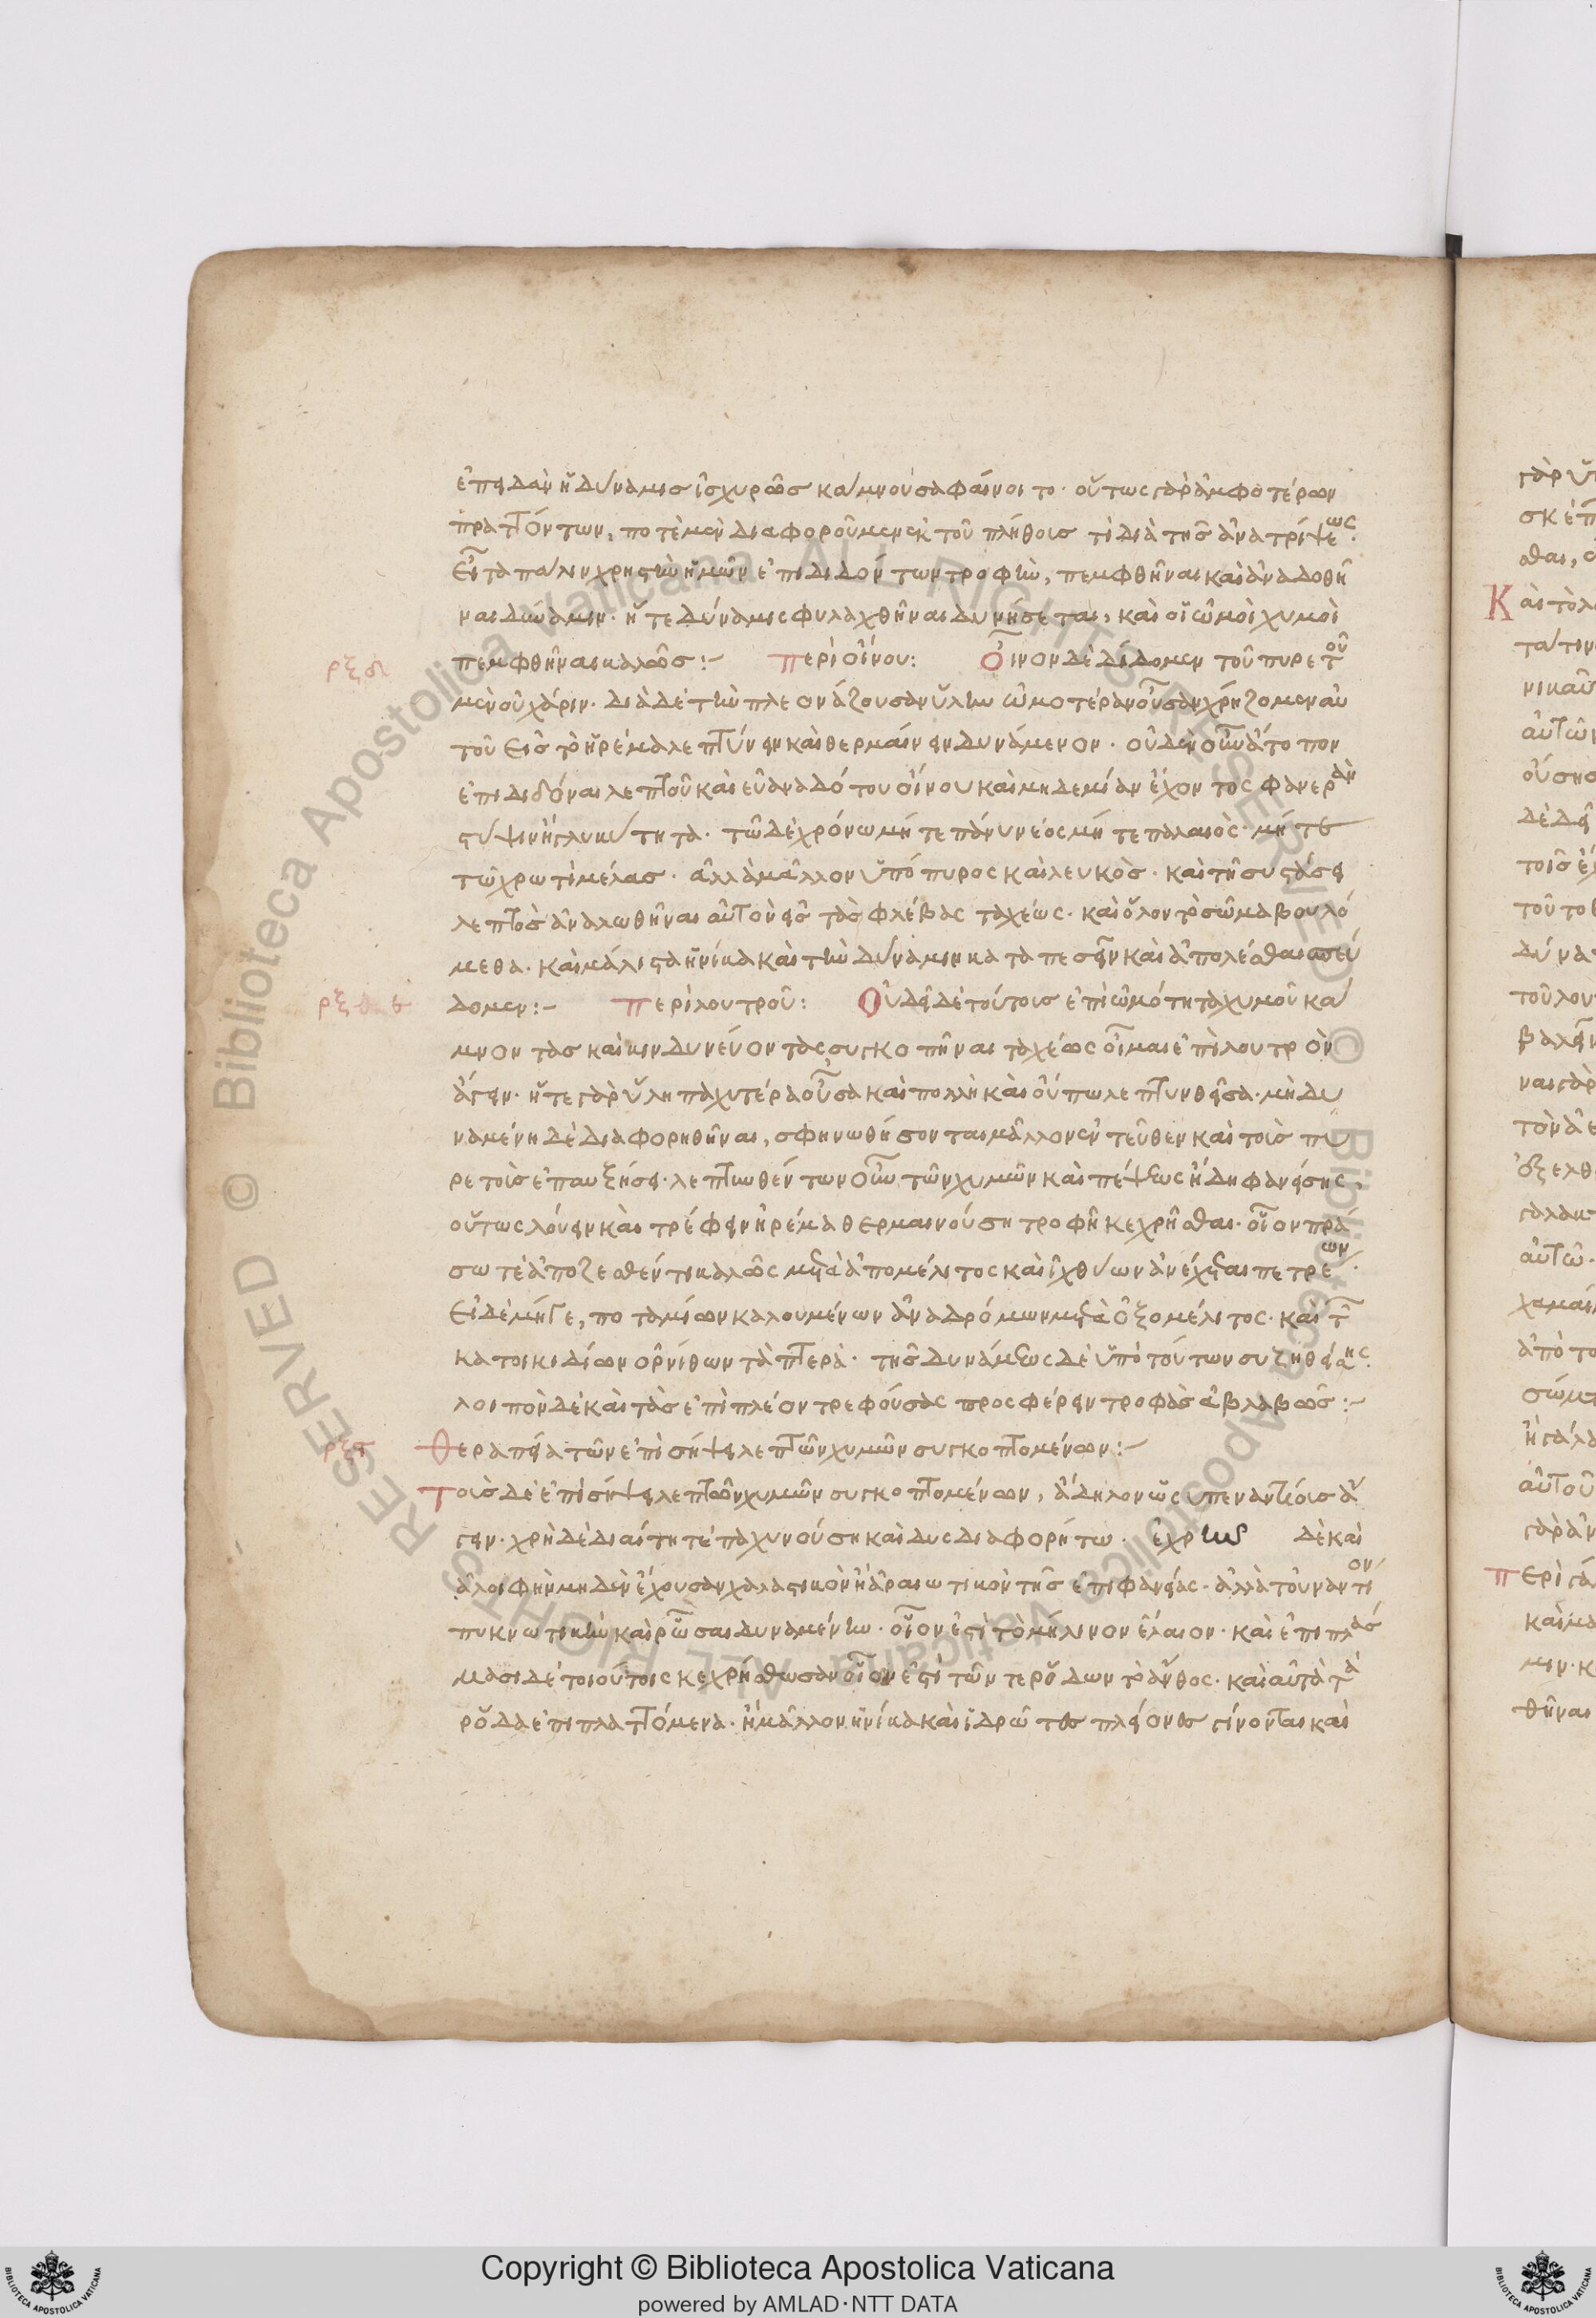 ἐπειδὰν ἡ δύναμις ἰσχυρῶς κάμνουσα φαίνοιτο· οὕτως γὰρ ἀμφοτέρων
πραττόντων, ποτὲ μὲν διαφοροῦμεν ἐκ τοῦ πλήθους τι διὰ τῆς ἀνατρίψεως·
εἶτα πάλιν χρηστὴν ἡμῶν ἐπιδιδόντων τροφὴν, πεμφθῆναι καὶ ἀναδοθῆ
ναι δυναμιν· ἥ τε δύναμις φυλαχθῆναι δυνήσεται, καὶ οἱ ὠμοὶ χυμοὶ
ρξδ πεμφθῆναι καλῶς :– Περὶ οἴνου: Οἶνον δὲ δίδομεν τοῦ πυρετοῦ
μὲν οὐ χάριν· διὰ δὲ τὴν πλεονάζουσαν ὕλην ὠμοτέραν οὖσαν χρήζομεν αὐ
τοῦ εἰς τὸ ἠρέμα λεπτύνειν καὶ θερμαίνειν δυνάμενον· οὐδὲν οὖν ἄτοπον
ἐπιδιδόναι λεπτοῦ καὶ εὐαναδότου οἴνου καὶ μηδεμίαν ἔχοντος φανερὰν
στύψιν ἢ γλυκύτητα· τῷ δὲ χρόνω μήτε πάνυ νέος μήτε παλαιὸς· μήτε
τῷ χρωτὶ μέλας· ἀλλὰ μᾶλλον ὑπόπυρος καὶ λευκὸς· καὶ τῇ συστάσει
λεπτὸς ἀναλωθῆναι αὐτὸν εἰς τὰς φλέβας ταχέως· καὶ ὅλον τὸ σῶμα βουλό
μεθα· καὶ μάλιστα ἡνίκα καὶ τὴν δύναμιν καταπεσεῖν καὶ ἀπολέσθαι σπεύ
ρξε δομεν :– Περὶ λουτροῦ: Οὐδεὶ δὲ τούτοις ἐπὶ ὠμότητα χυμοῦ κά
μνοντας καὶ κινδυνεύοντας συγκοπῆναι ταχέως οἶμαι ἐπὶ λουτρὸν
ἄγειν· ἥ τε γὰρ ὕλη παχυτέρα οὖσα καὶ πολλὴ καὶ οὔπω λεπτυνθεῖσα· μὴ δυ
ναμένη δὲ διαφορηθῆναι, σφηνωθήσονται μᾶλλον ἐντεῦθεν καὶ τοῖς πυ
ρετοῖς ἐπαυξήσει· λεπτυνθέντων οὖν τῶν χυμῶν καὶ πέψεως ἤδη φανείσης,
οὕτως λούειν καὶ τρέφειν ἠρέμα θερμαινούση τροφῇ κεχρῆσθαι· οἷον πρά
σω τὲ ἀποζεσθέντι καλῶς μετὰ ἀπομέλιτος καὶ ἰχθύων ἀνέχεσθαι πετρέων·
Εἰ δὲ μήγε, ποταμίων καλουμένων ἀναδρόμων μετὰ ὀξομέλιτος· καὶ τ
κατοικιδίων ὀρνίθων τὰ πτερὰ· τῆς δυνάμεως δὲ ὑπὸ τούτων συζηθείσης·
λοιπὸν δὲ καὶ τὰς ἐπὶ πλέον τρεφούσας προσφέρειν τροφὰς ἀβλαβῶς :–
ρξϛ Θεραπεία τῶν ἐπὶ σήψει λεπτῶν χυμῶν συγκοπτομένων :–
Τοῖς δὲ ἐπὶ σήψει λεπτῶν χυμῶν συγκοπτομένων, ἄδηλον ὡς ὑπεναντίοις ἄ
γειν· χρὴ δὲ διαίτη τὲ παχυνούση καὶ δυσδιαφορήτω· ἐχρην δὲ καὶ
ἀλοιφὴν μηδὲν ἔχουσαν χαλαστικὸν ἢ ἀραιωτικὸν τῆς ἐπιφανείας· ἀλλὰ τοὐναντίον
πυκνωτικὴν καὶ ρῶσαι δυναμένην· οἷον ἐστὶ τὸ μήλινον ἔλαιον· καὶ ἐπιπλάσ
μασι δὲ τοιούτοις κεχρήσθωσαν οἷον ἐστὶ τῶν τε ρόδων τὸ ἄνθος· καὶ αὐτὰ τὰ
ρόδα ἐπιπλαττόμενα· ἢ μᾶλλον ἡνίκα καὶ ἱδρῶτες πλείονες γίνονται καὶ